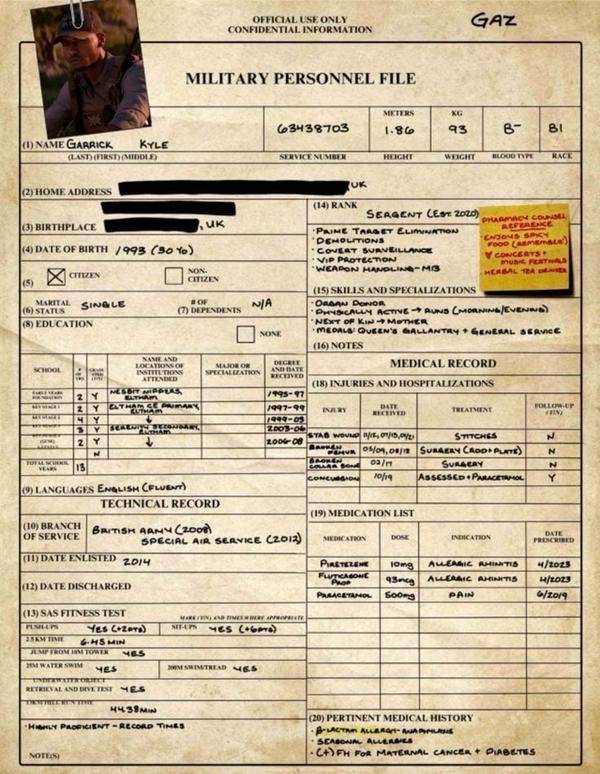 OFFICIAL USE ONLY
CONFIDENTIAL INFORMATION
GAZ
MILITARY PERSONNEL FILE
(1) NAME GARRICK KYLE
(LAST) (FIRST) (MIDDLE)
63438703
SERVICE NUMBER
METERS
1.86
HEIGHT
KG
93
WEIGHT
B-
BLOOD TYPE
B1
RACE
(2) HOME ADDRESS UK
(3) BIRTHPLACE , UK
(4) DATE OF BIRTH /1993 (30 YO)
(5) CITIZEN
NON-CITIZEN
MARITAL
(6) STATUS SINGLE
# OF
(7) DEPENDENTS N/A
(8) EDUCATION
NONE
SCHOOL
# OF YRS
NAME AND LOCATIONS OF INSTITUTIONS ATTENDED
MAJOR OR SPECIALIZATION
DEGREE AND DATE RECEIVED
EARLY YEARS FOUNDATION 2 Y NESBIT NIPPERS, ELTHAM 1995-97
KEY STAGE 1 2 Y ELTHAM CE PRIMARY, ELTHAM 1997-99
4 Y ↓ 1999-03
3 Y SERENITY SECONDARY, ELTHAM 2003-06
2 Y ↓ 2006-08
N
TOTAL SCHOOL YEARS 13
(9) LANGUAGES ENGLISH (FLUENT)
TECHNICAL RECORD
(10) BRANCH OF SERVICE BRITISH ARMY (2008)
SPECIAL AIR SERVICE (2012)
(11) DATE ENLISTED 2014
(12) DATE DISCHARGED
(13) SAS FITNESS TEST
MARK (Y/N) AND TIMES WHERE APPROPRIATE
PUSH-UPS YES (+2PTS) SIT-UPS YES (+6PTS)
2.5 KM TIME 6.45 MIN
JUMP FROM 10M TOWER YES
25M WATER SWIM YES 200M SWIM/TREAD YES
UNDERWATER OBJECT
RETRIEVAL AND DIVE TEST YES
HILL RUN TIME 44.38MIN
· HIGHLY PROFICIENT - RECORD TIMES
NOTE(S)
(14) RANK
SERGENT (EST 2020)
· PRIME TARGET ELIMINATION
· DEMOLITIONS
· COVERT SURVEILLANCE
· VIP PROTECTION
· WEAPON HANDLING - M13
PHARMACY COUNSEL
REFERENCE
· ENJOYS SPICY
FOOD (REMEMBER!)
♥ CONCERTS +
MUSIC FESTIVALS
HERBAL TEA DENIER
(15) SKILLS AND SPECIALIZATIONS
· ORGAN DONOR
· PHYSICALLY ACTIVE → RUNS (MORNING/EVENING)
· NEXT OF KIN → MOTHER
· MEDALS: QUEEN'S GALLANTRY + GENERAL SERVICE
(16) NOTES
MEDICAL RECORD
(18) INJURIES AND HOSPITALIZATIONS
INJURY DATE RECEIVED TREATMENT FOLLOW-UP (Y/N)
STAB WOUND 11/12, 07/13, 01/21 STITCHES N
BROKEN FEMUR 05/09, 08/12 SURGERY (ROD+PLATE) N
BROKEN COLLAR BONE 02/17 SURGERY N
CONCUSSION 10/19 ASSESSED + PARACETAMOL Y
(19) MEDICATION LIST
MEDICATION DOSE INDICATION DATE PRESCRIBED
PIRETEZENE 10mg ALLERGIC RHINITIS 4/2023
FLUTICASONE PROP 93mcg ALLERGIC RHINITIS 4/2023
PARACETAMOL 500mg PAIN 6/2019
(20) PERTINENT MEDICAL HISTORY
· β-LACTAM ALLERGY - ANAPHYLAXIS
· SEASONAL ALLERGIES
· (+) FH FOR MATERNAL CANCER + DIABETES